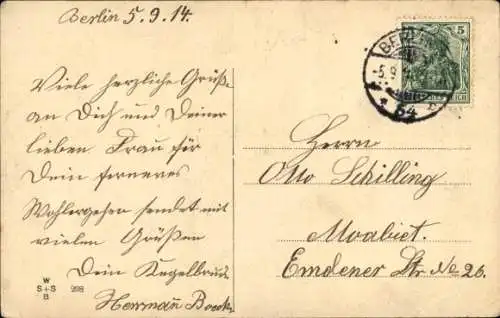 Berlin 5.9.14.
Viele herzliche Grüße
an Dich und Deiner
lieben Frau für
Dein ferneres
Wohlergehen sendet mit
vielen Grüßen
Dein Kegelbrud
Herrmann
Herrn
Otto Schilling
Moabiet.
Emdener Str. No 26.
5
-5.9
54
W
S+S
B
998